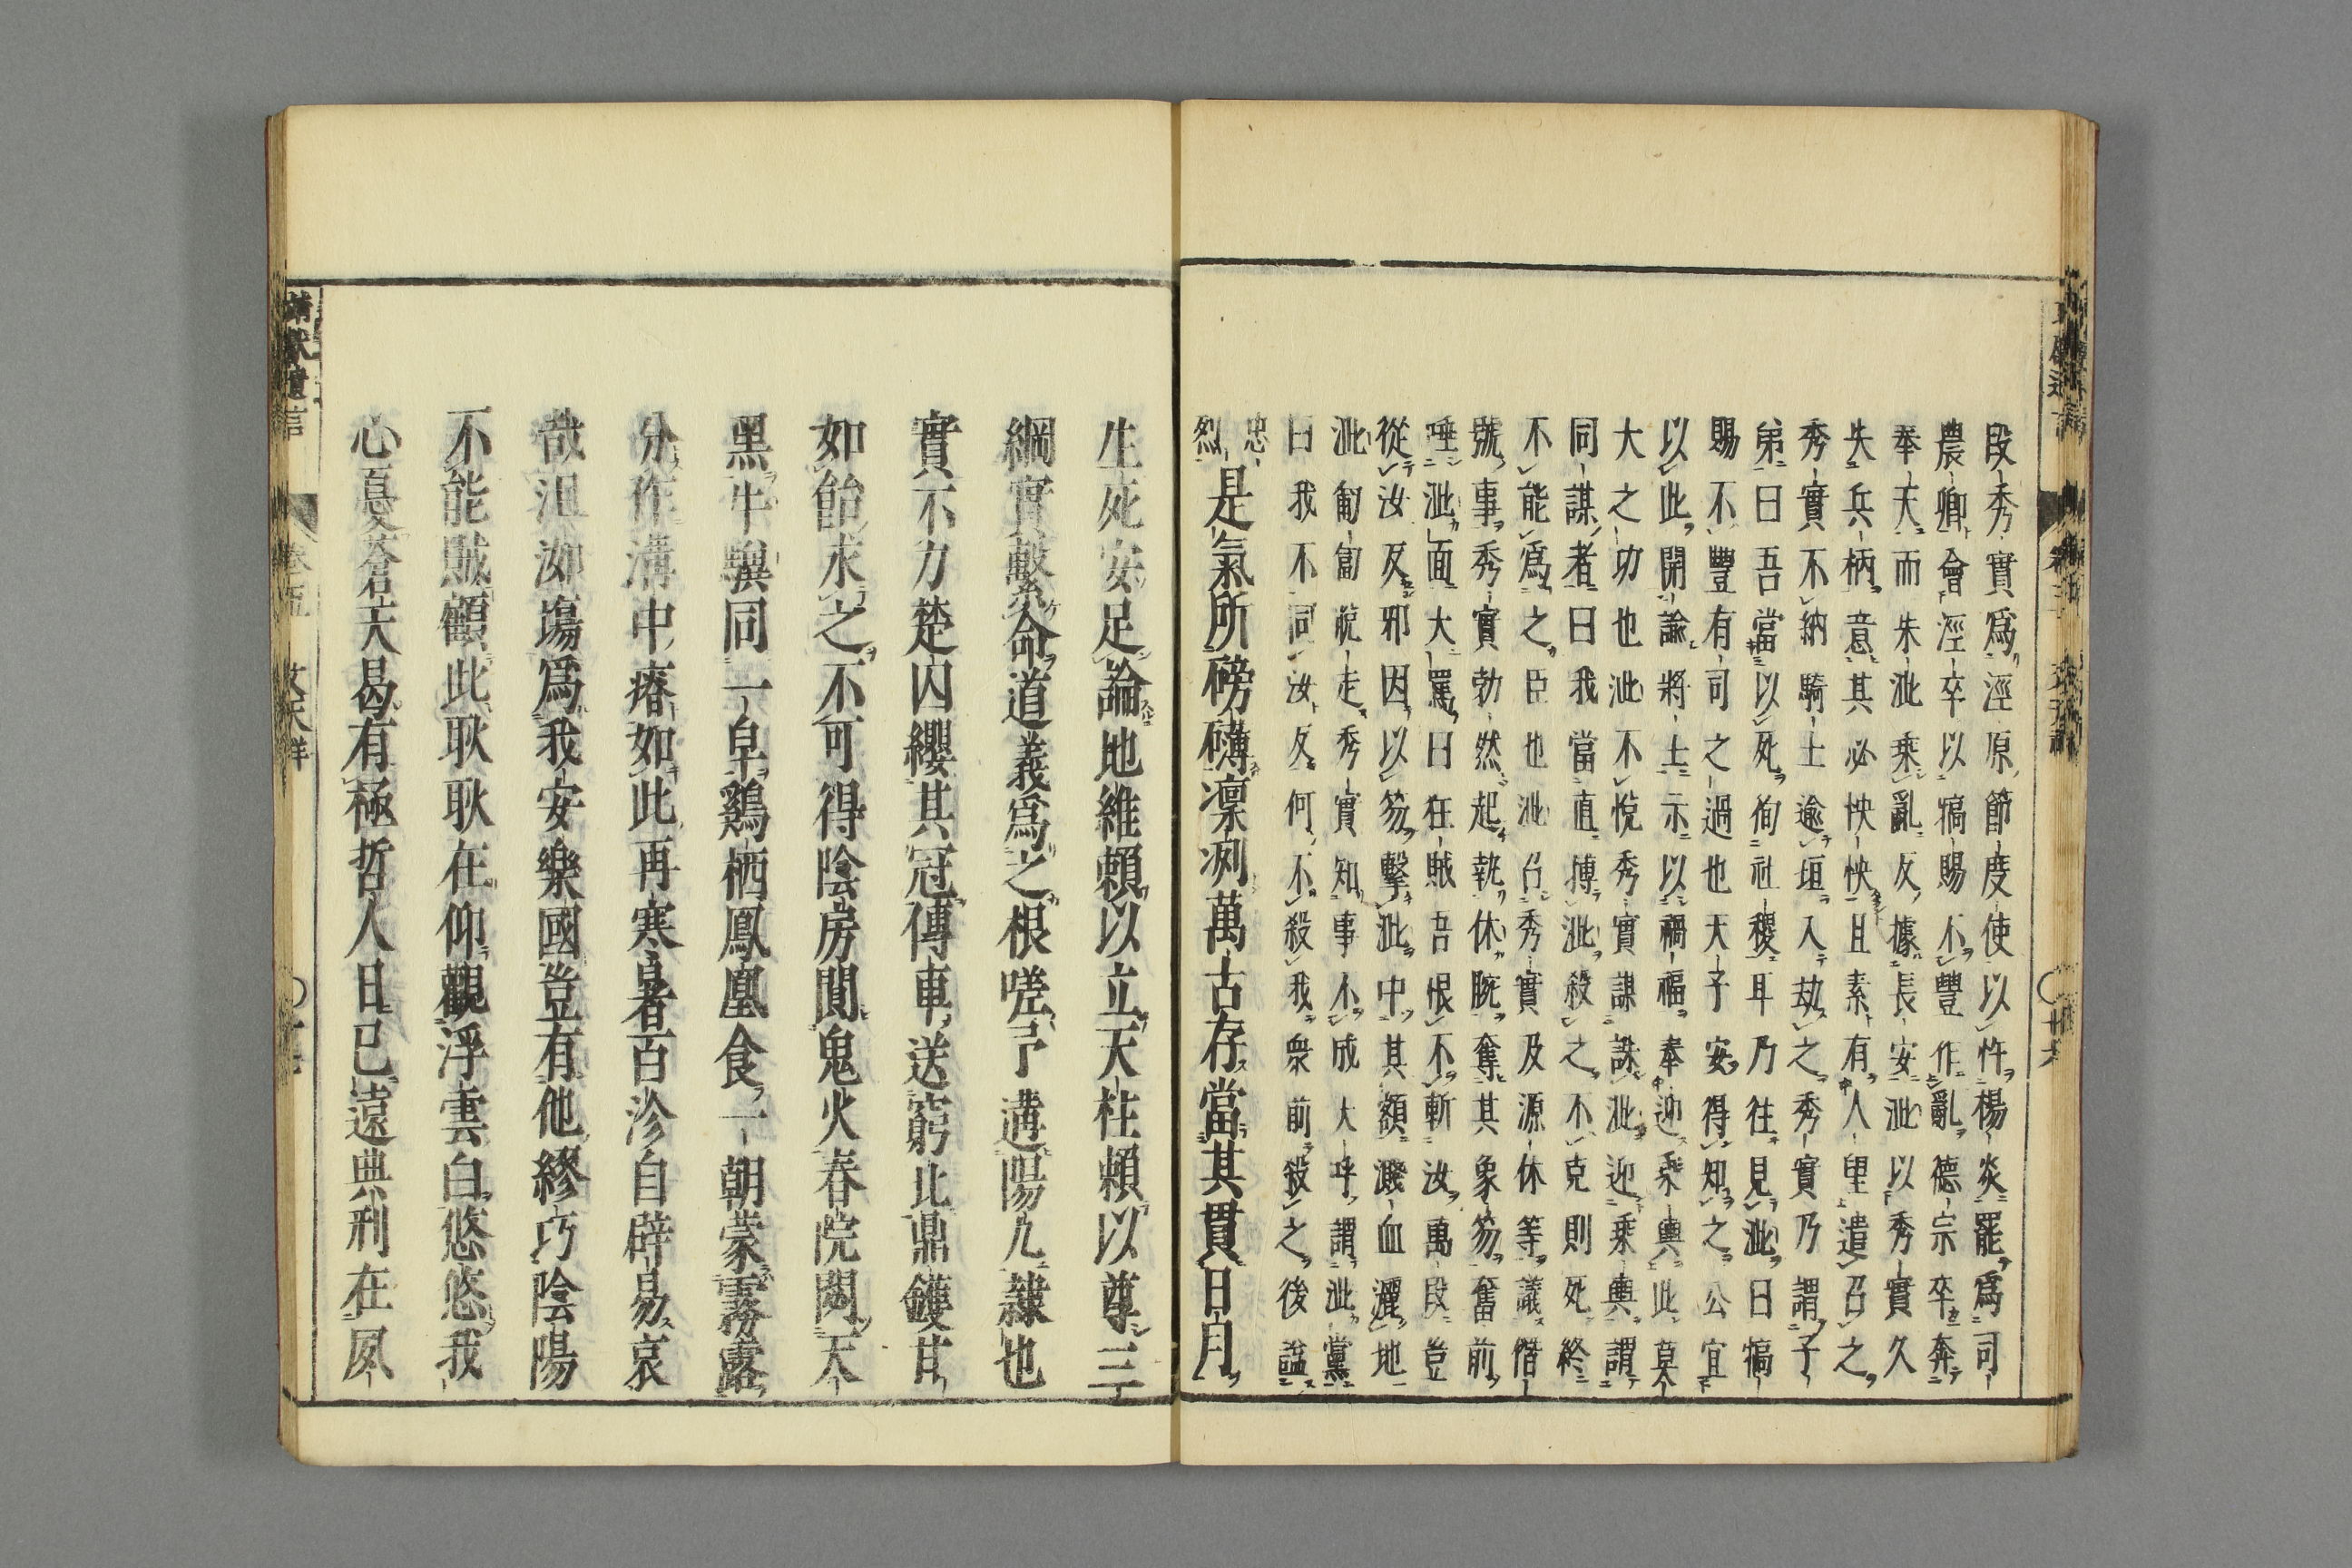 段秀實爲涇原節度使以忤楊炎罷爲司
農卿會涇卒以犒賜不豐作亂德宗卒奔
奉天而朱泚乘亂反據長安泚以秀實久
失兵柄意其必怏怏且素有人望遣召之
秀實不納騎士逾垣入劫之秀實乃謂子
弟曰吾當以死徇社稷耳乃往見泚曰犒
賜不豐有司之過也天子安得知之公宜
以此開諭將士示以禍福奉迎乘輿此莫
大之功也泚不悅秀實謀誅泚迎乘輿謂
同謀者曰我當直搏泚殺之不克則死終
不能爲之臣也泚召秀實及源休等議僭
號事秀實勃然起執休腕奪其象笏奮前
唾泚面大罵曰狂賊吾恨不斬汝萬段豈
從汝反邪因以笏擊泚中其額濺血灑地
泚匍匐脫走秀實知事不成大呼謂泚黨
曰我不同汝反何不殺我衆前殺之後諡
忠烈是氣所磅礴凛冽萬古存當其貫日月
生死安足論地維賴以立天柱賴以尊三
綱實繫命道義爲之根嗟予遘陽九隸也
實不力楚囚纓其冠傳車送窮北鼎鑊甘
如飴求之不可得陰房闃鬼火春院閟天
黑牛驥同一皁鷄栖鳳凰食一朝蒙霧露
分作溝中瘠如此再寒暑百沴自辟易哀
哉沮洳塲爲我安樂國豈有他繆巧陰陽
不能賊顧此耿耿在仰觀浮雲白悠悠我
心憂蒼天曷有極哲人日已遠典刑在夙
靖獻遺言 卷五 文天祥